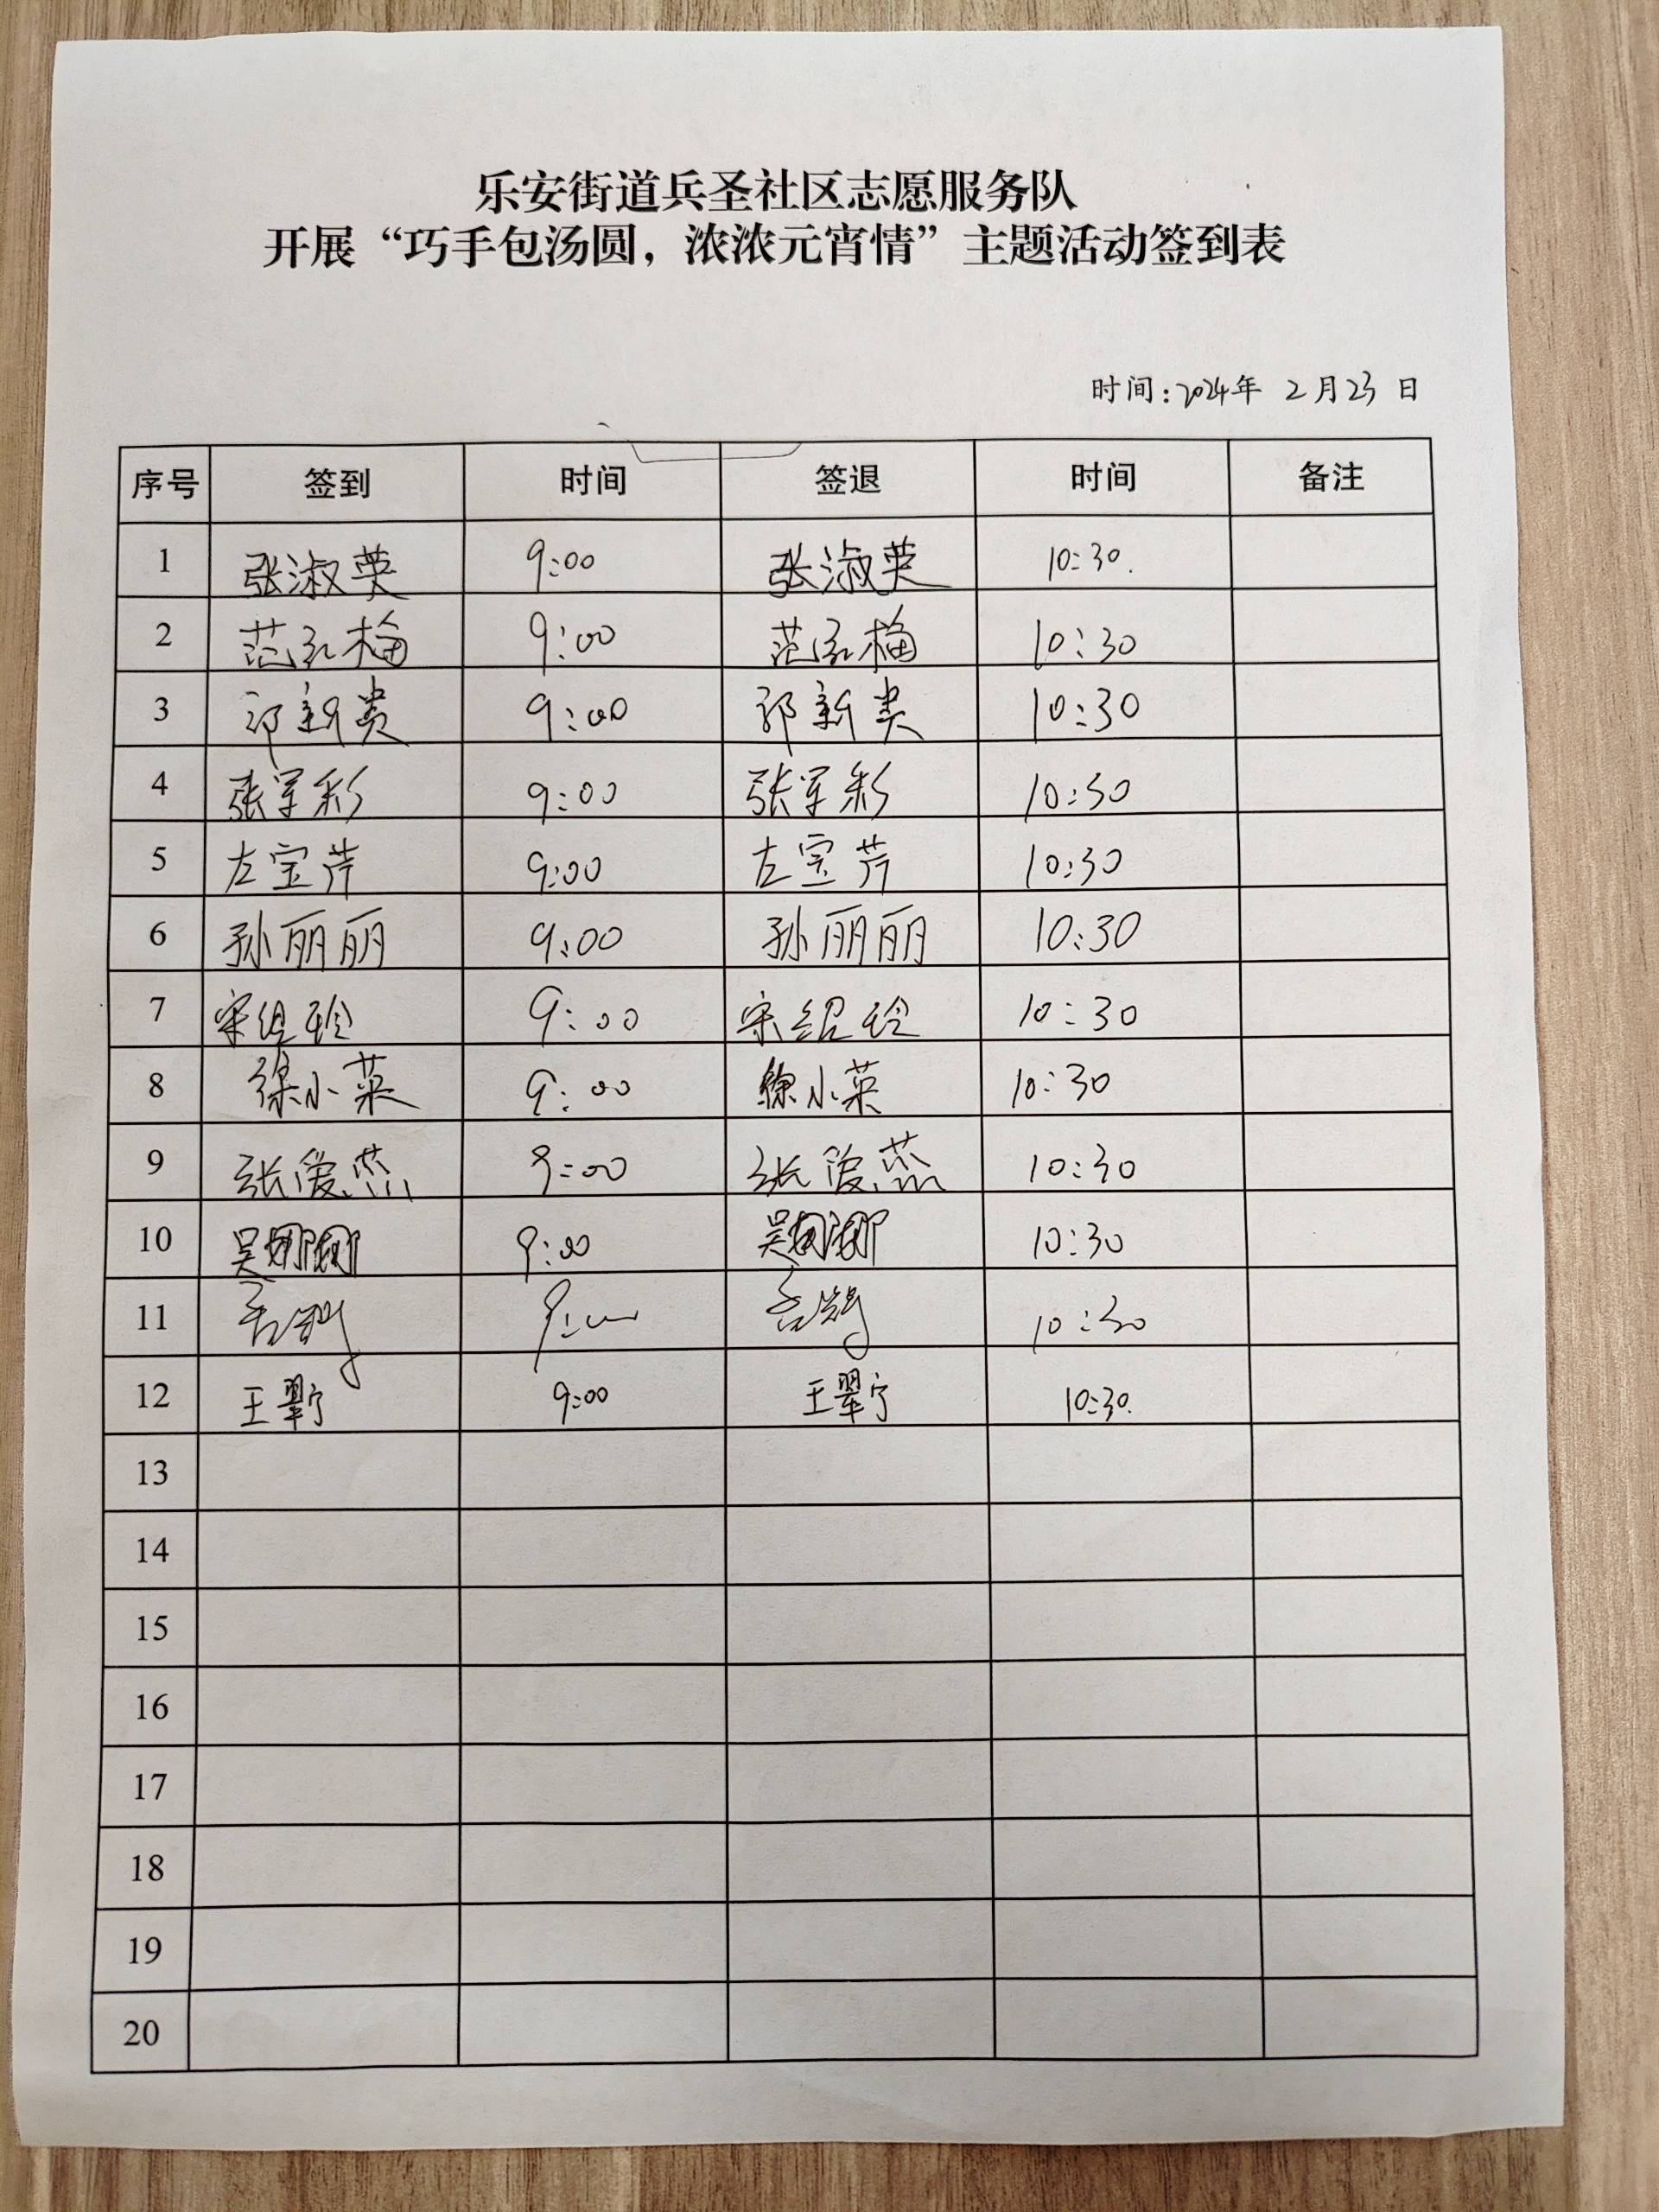 乐安街道兵圣社区志愿服务队
开展“巧手包汤圆，浓浓元宵情”主题活动签到表
时间：2024年 2月23日
序号 签到 时间 签退 时间 备注
1 张淑英 9:00 张淑英 10:30.
2 范永梅 9:00 范永梅 10:30
3 郭新贵 9:00 郭新贵 10:30
4 张军彩 9:00 张军彩 10:30
5 左宝芹 9:00 左宝芹 10:30
6 孙丽丽 9:00 孙丽丽 10:30
7 宋绍玲 9:00 宋绍玲 10:30
8 徐小英 9:00 徐小英 10:30
9 张爱燕 9:00 张爱燕 10:30
10 吴娜娜 9:00 吴娜娜 10:30
11 9:00 10:30
12 王翠宁 9:00 王翠宁 10:30.
13
14
15
16
17
18
19
20